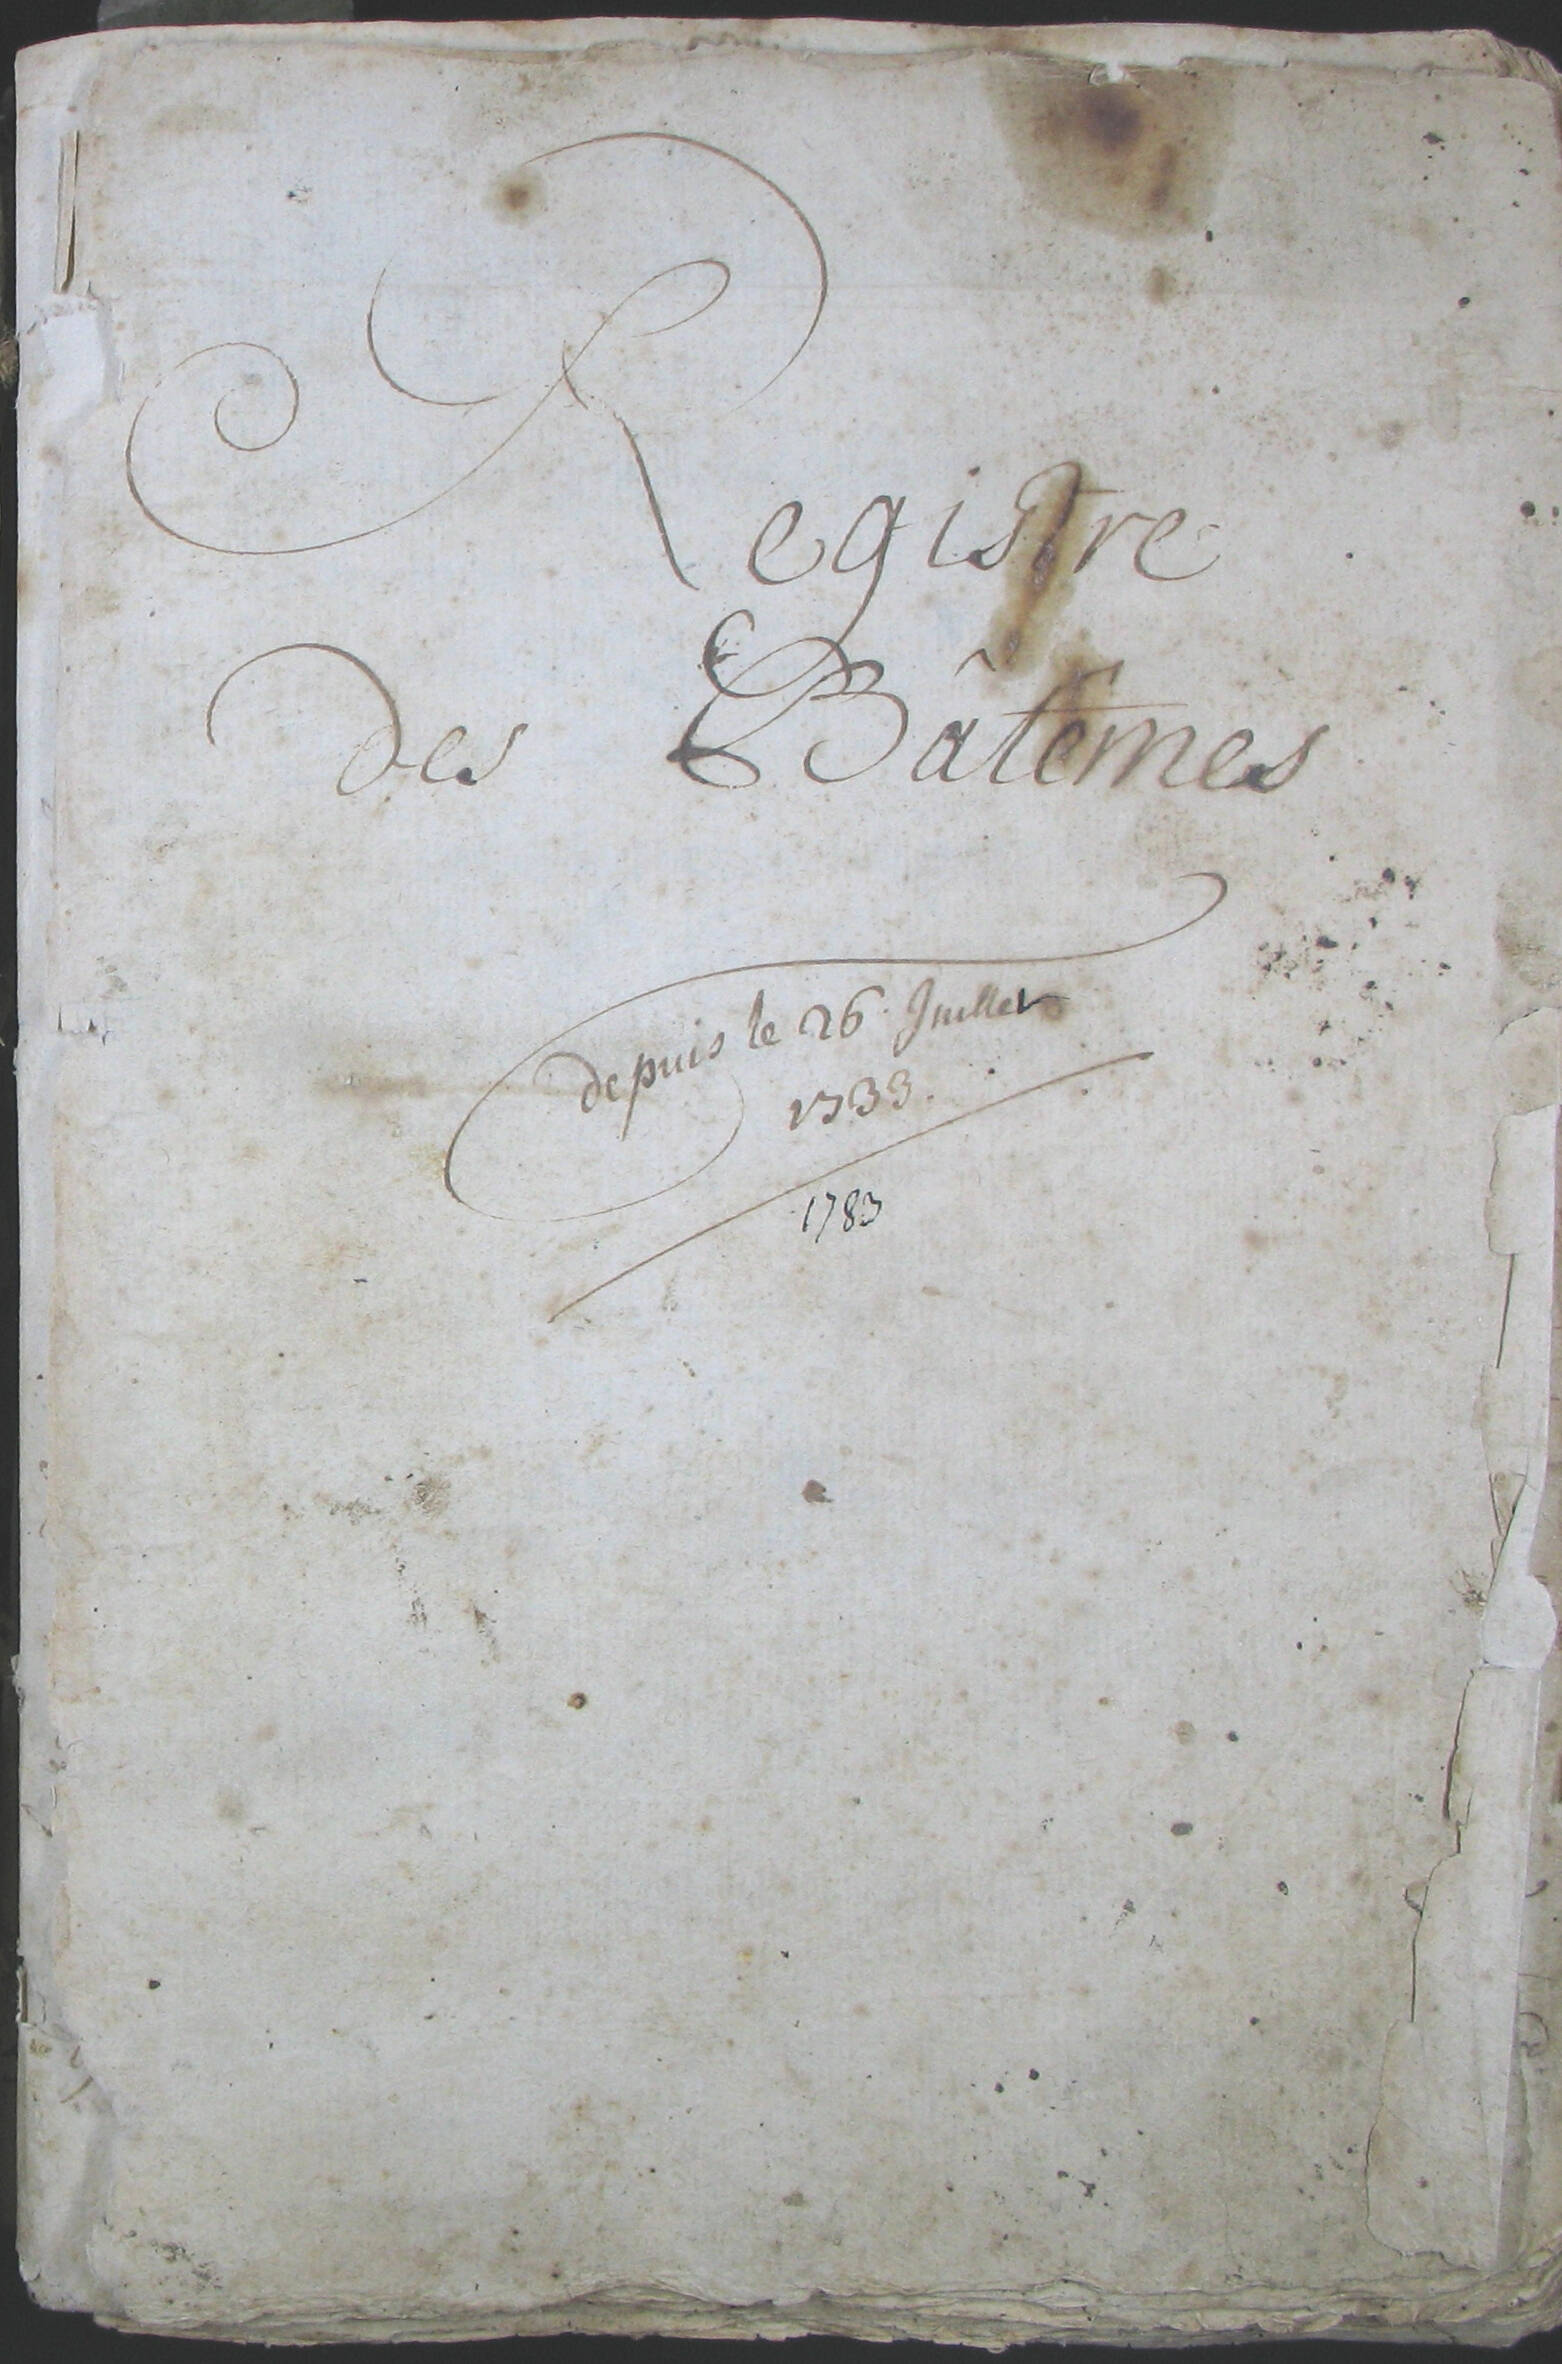 Registre
des Bâtêmes
depuis le 26. Juillet
1733.
1783